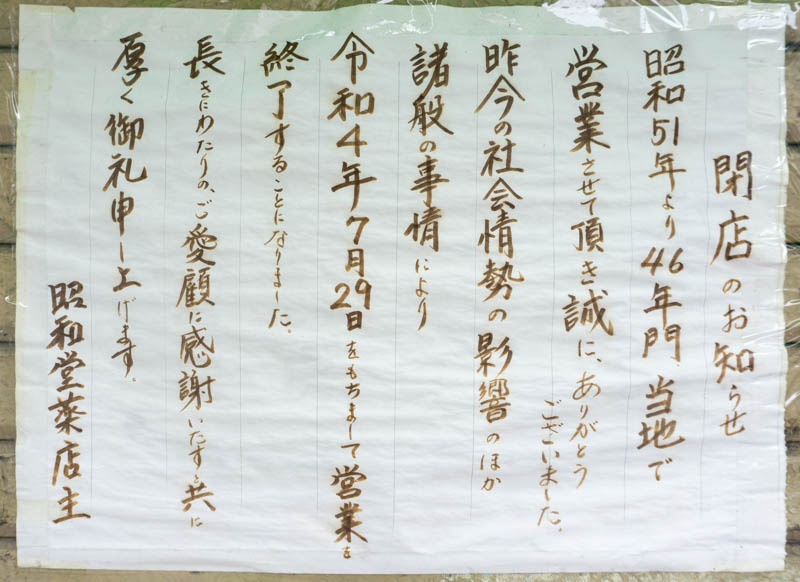 閉店のお知らせ
昭和51年より46年門、当地で
営業させて頂き誠に、ありがとう
ございました。
昨今の社会情勢の影響のほか
諸般の事情により
令和4年7月29日をもちまして営業を
終了することになりました。
長きにわたりの、ご愛顧に感謝いたすと共に
厚く御礼申し上げます。
昭和堂薬店主